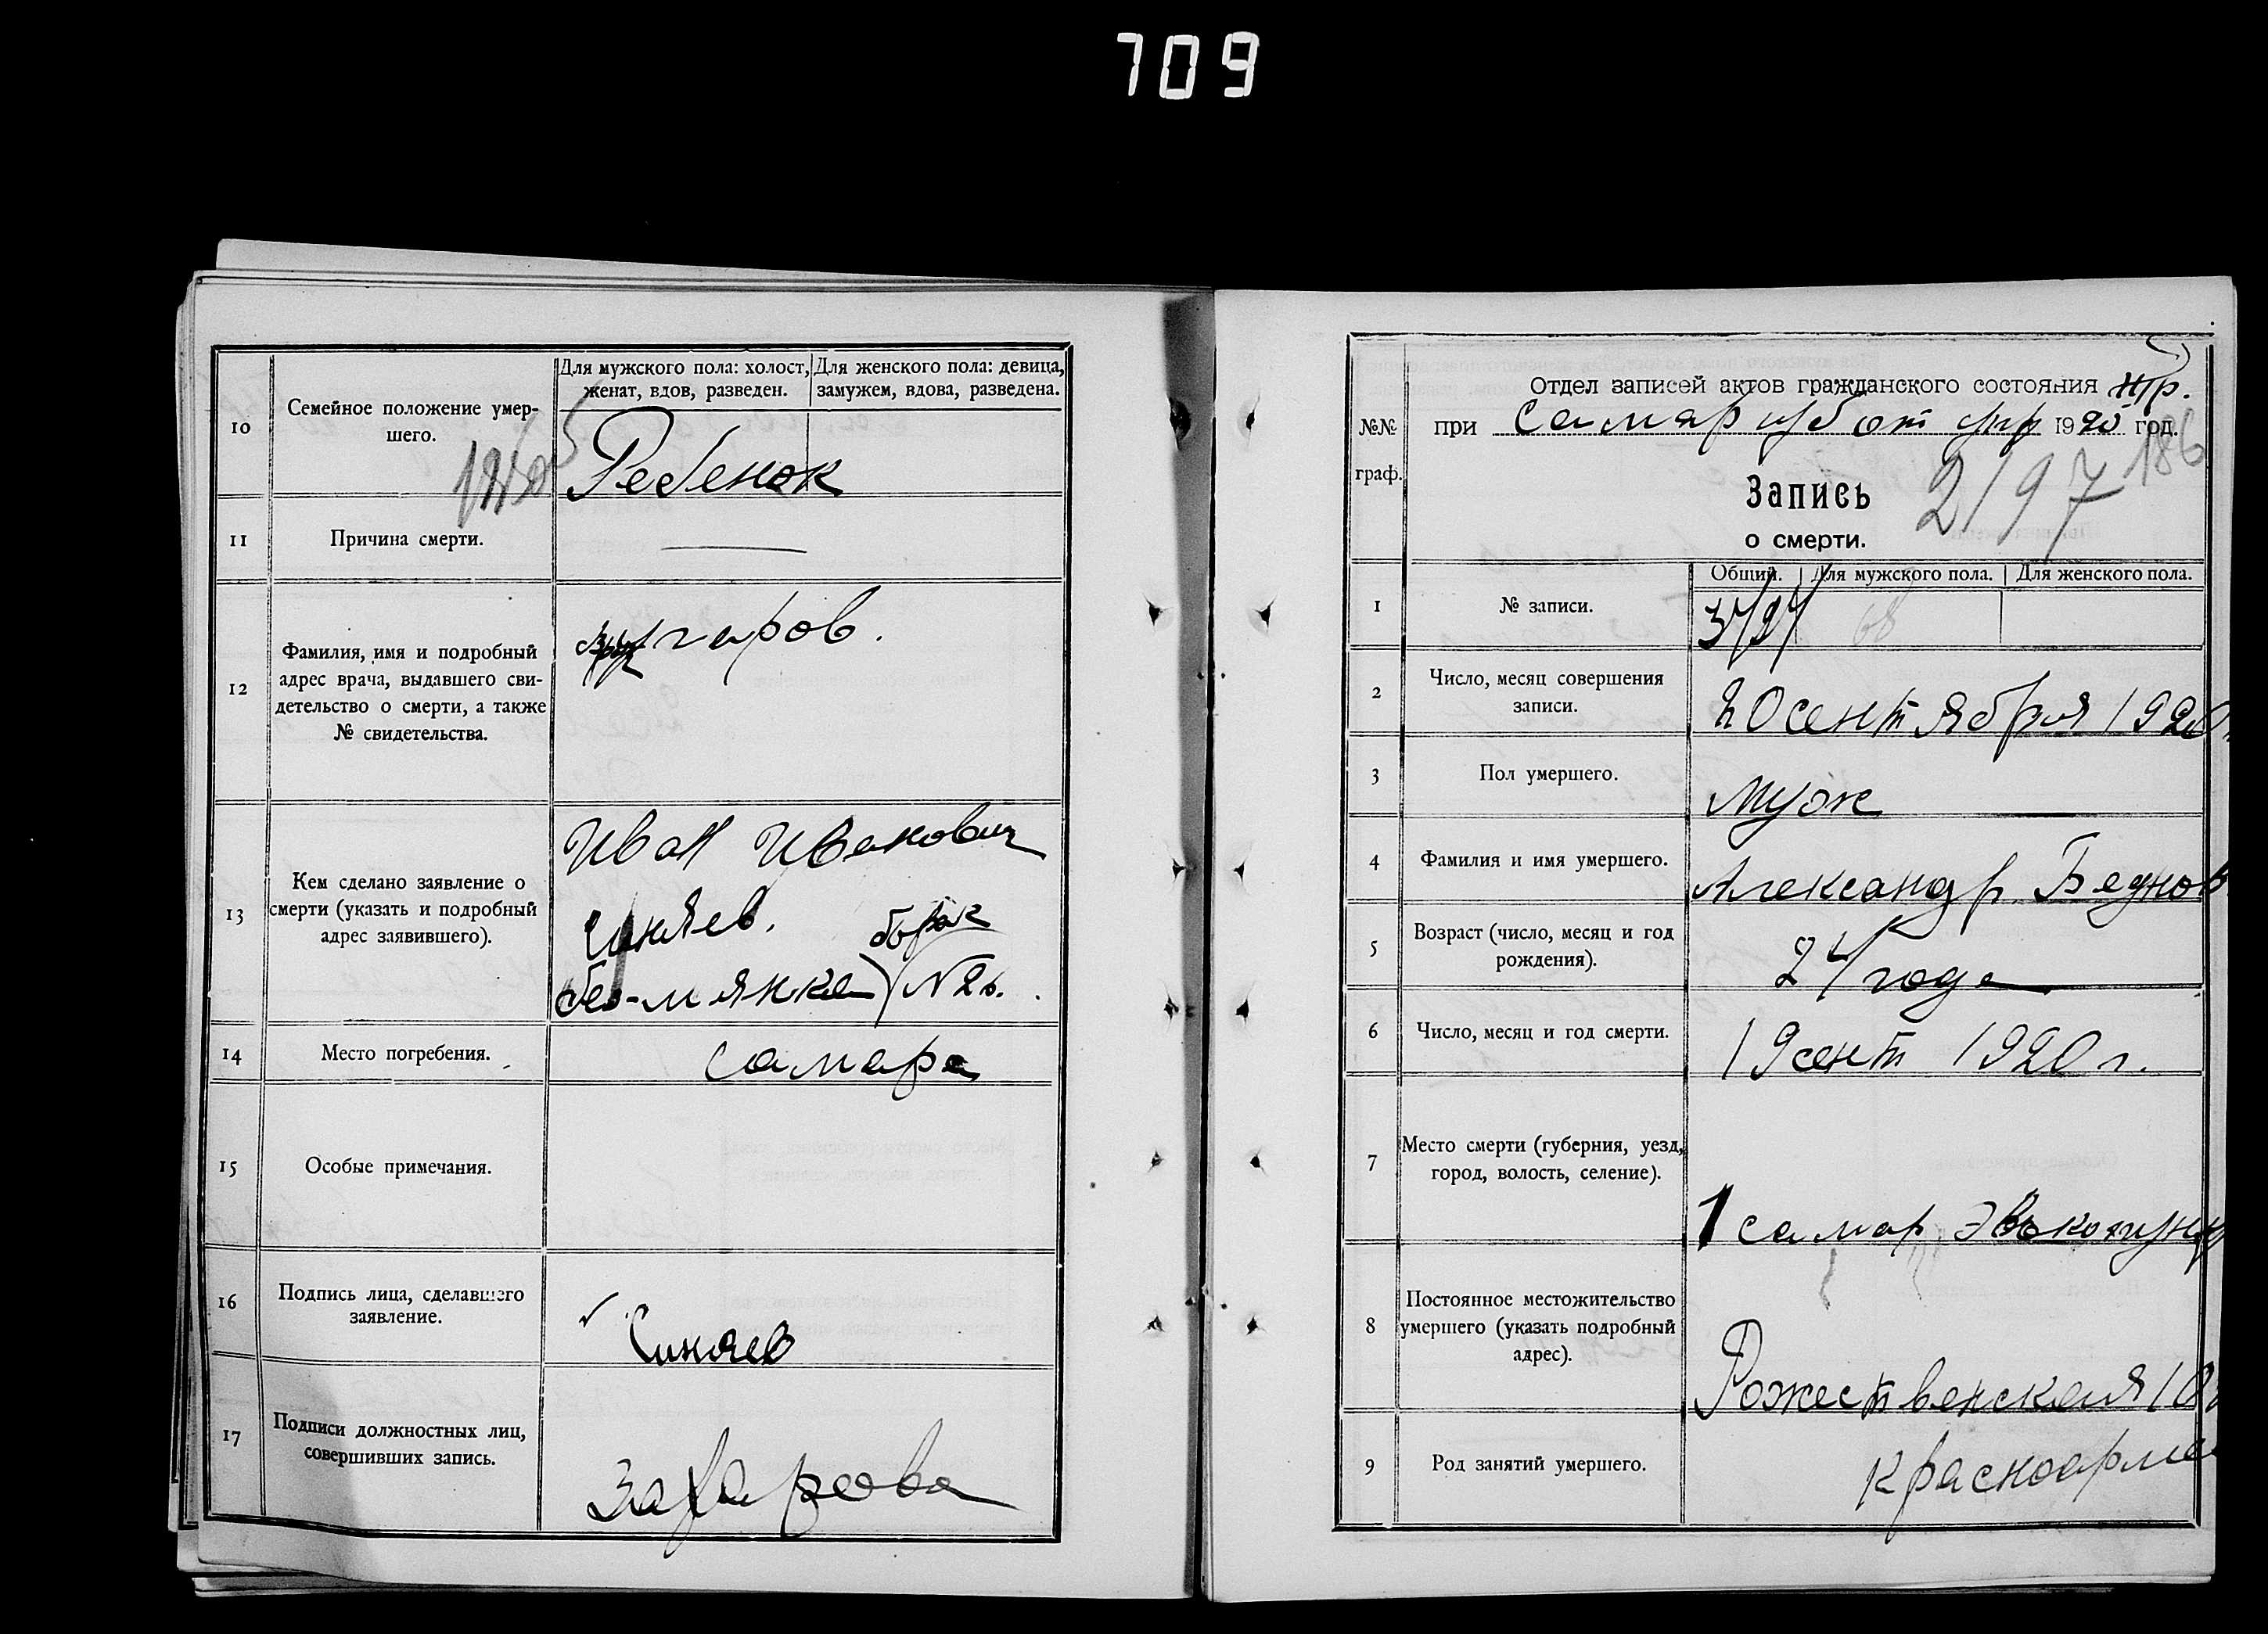 709
10
Семейное положение умер-
шего.
Для мужского пола: холост,
женат, вдов, разведен.
Для женского пола: девица,
замужем, вдова, разведена.
Ребенок
11
Причина смерти.
12
Фамилия, имя и подробный
адрес врача, выдавшего сви-
детельство о смерти, а также
№ свидетельства.
13
Кем сделано заявление о
смерти (указать и подробный
адрес заявившего).
Иван Иванович
Синяев.
барак
без-мянка) №2б.
14
Место погребения.
Самара
15
Особые примечания.
16
Подпись лица, сделавшего
заявление.
Синяев
17
Подписи должностных лиц,
совершивших запись.
Захарова
№№
граф.
Отдел записей актов гражданского состояния
при Самар губ от упр 1920 год.
186
Запись
2197
о смерти.
1
№ записи.
Общий.
Для мужского пола.
Для женского пола.
68
2
Число, месяц совершения
записи.
20 сентября 1920
3
Пол умершего.
Муж
4
Фамилия и имя умершего.
Александр Беднов
5
Возраст (число, месяц и год
рождения).
24 года
6
Число, месяц и год смерти.
19 сент 1920 г.
7
Место смерти (губерния, уезд,
город, волость, селение).
1 самар эвакопун
8
Постоянное местожительство
умершего (указать подробный
адрес).
Рожественская 10
9
Род занятий умершего.
Красноарме